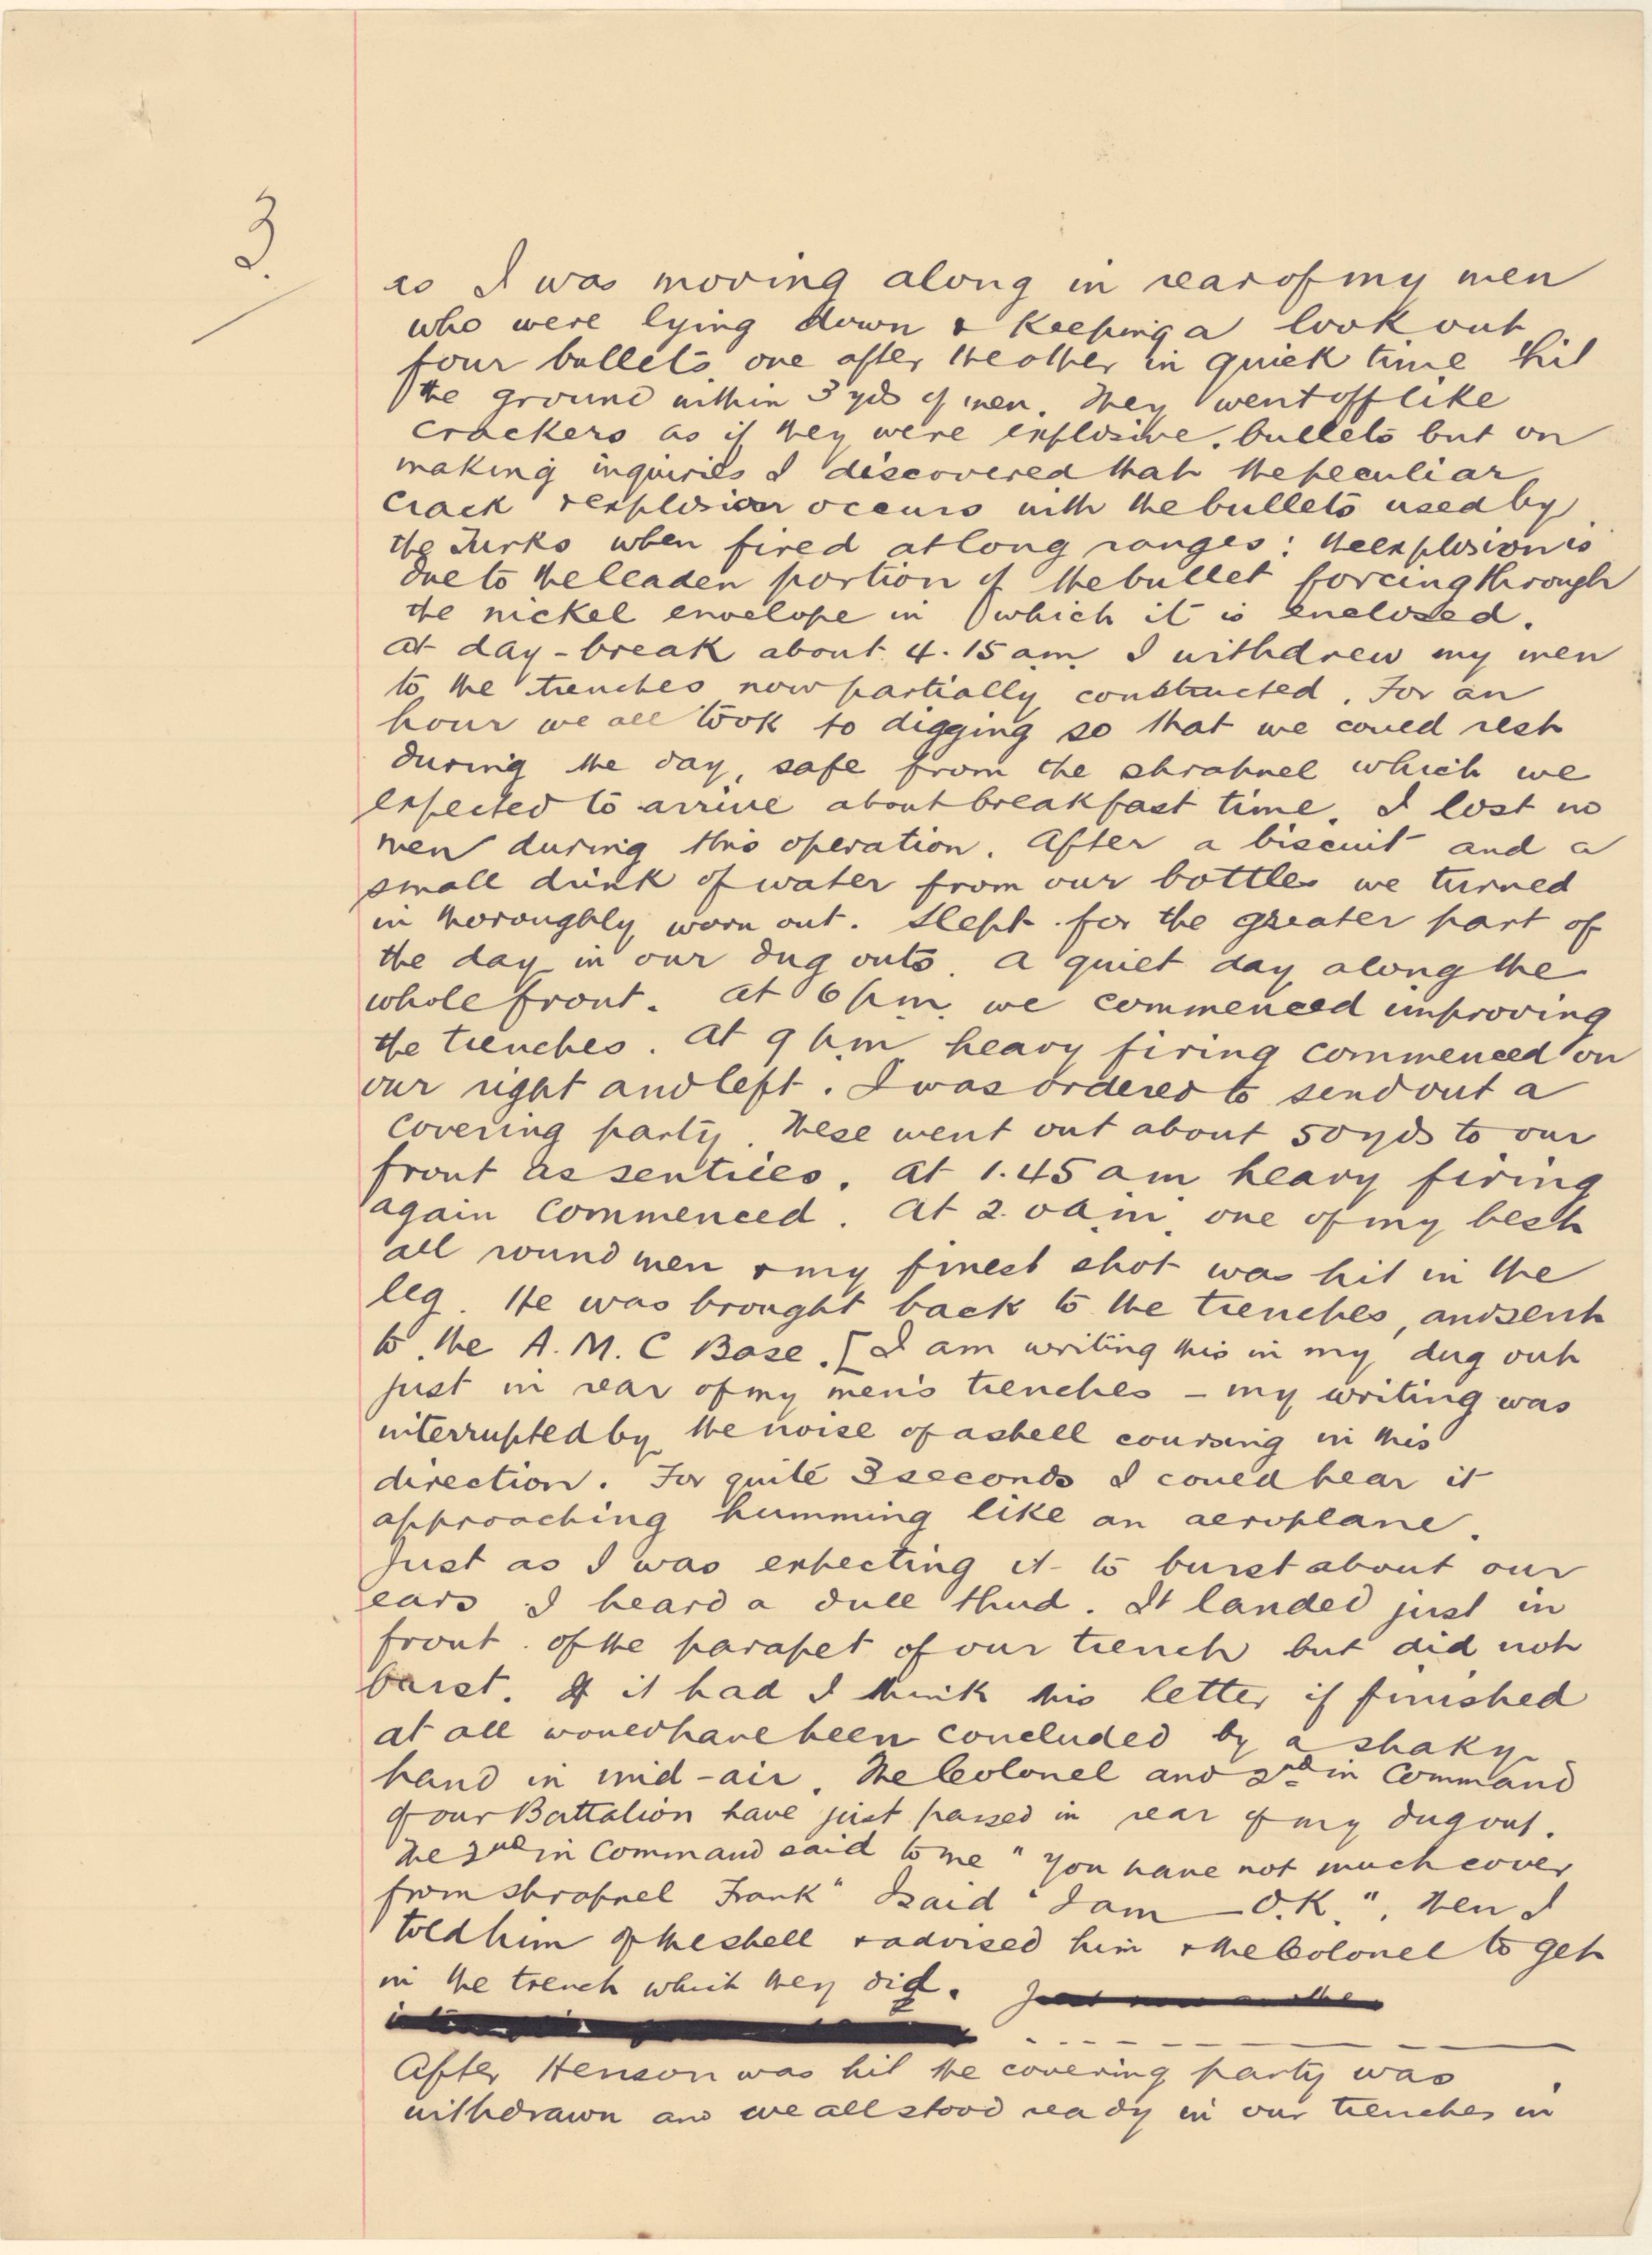 3.
as I was moving along in rear of my men
who were lying down & keeping a look out
four bullets one after the other in quick time hit
the ground within 3 yds of men. They went off like
crackers as if they were explosive bullets but on
making inquiries I discovered that the peculiar
crack & explosion occurs with the bullets used by
the Turks when fired at long ranges: the explosion is
due to the leaden portion of the bullet forcing through
the nickel envelope in which it is enclosed.
At day-break about 4.15 am I withdrew my men
to the trenches now partially constructed. For an
hour we all took to digging so that we could rest
during the day, safe from the shrapnel which we
expected to arrive about breakfast time. I lost no
men during this operation. After a biscuit and a
small drink of water from our bottles we turned
in thoroughly worn out. Slept for the greater part of
the day in our dug outs. A quiet day along the
whole front. At 6 p.m. we commenced improving
the trenches. At 9 p.m. heavy firing commenced on
our right and left. I was ordered to send out a
covering party. These went out about 50 yds to our
front as sentries. At 1.45 am heavy firing
again commenced. At 2.0 a.m. one of my best
all round men & my finest shot was hit in the
leg. He was brought back to the trenches, and sent
to the A.M.C Base. [I am writing this in my dug out
just in rear of my men's trenches - my writing was
interrupted by the noise of a shell coursing in this
direction. For quite 3 seconds I could hear it
approaching humming like an aeroplane.
Just as I was expecting it to burst about our
ears I heard a dull thud. It landed just in
front of the parapet of our trench but did not
burst. If it had I think this letter if finished
at all would have been concluded by a shaky
hand in mid-air. The Colonel and 2nd in Command
of our Battalion have just passed in rear of my dug out.
The 2nd in Command said to me "you have not much cover
from shrapnel Frank" I said "I am — O.K.". Then I
told him of the shell & advised him & the Colonel to get
in the trench which they did.
After Henson was hit the covering party was
withdrawn and we all stood ready in our trenches in